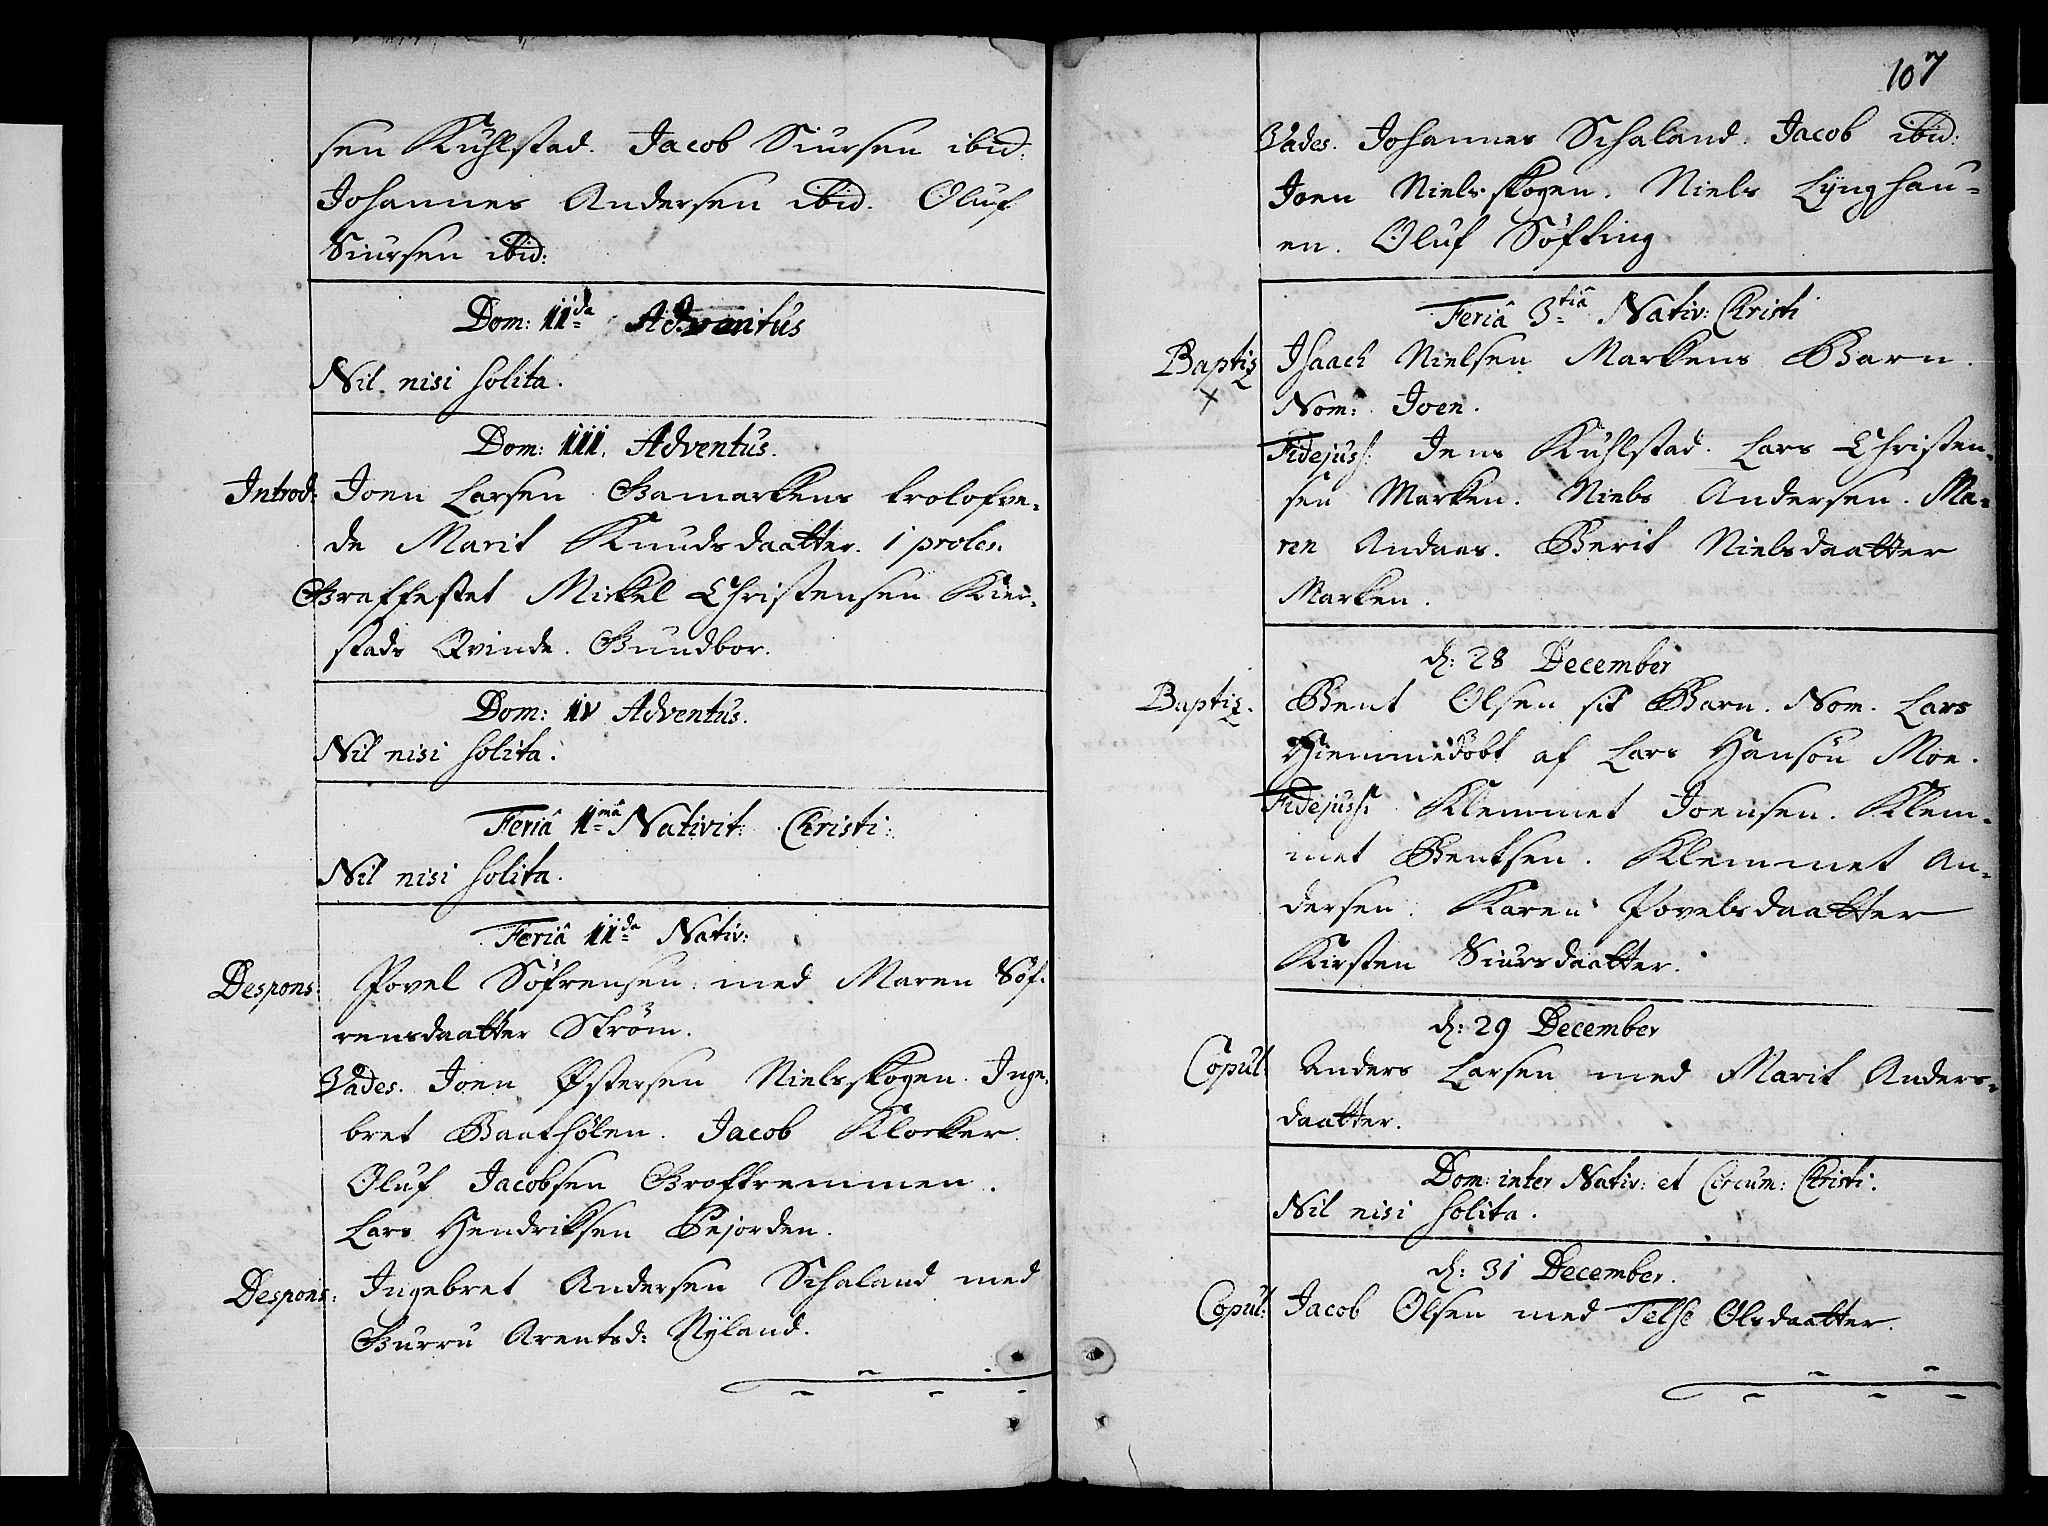 sen Kuhlstad. Jacob Siursen ibid:
Johannes Andersen ibid. Oluf
Siursen ibid:
Dom: II<sup>da</sup> Adventus
Nil nisi solita.
Dom: III. Adventus.
Introd: Joen Larsen Gamarkens trolofve-
de Marit Knudsdaatter. 1 proles.
Græsfestet Mickel Christensen Kier-
stads Qvinde. Gundbor.
Dom: IV Adventus.
Nil nisi solita.
Feriâ I<sup>mâ</sup> Nativit: Christi:
Nil nisi solita.
Feriâ II<sup>da</sup> Nativ:
Despons: Povel Söfrensen med Maren Söf-
rensdaatter Ström.
Vades. Joen Østersen Nielsskogen. Inge-
bret Baathölen. Jacob Klocker
Oluf Jacobsen
Lars Hendriksen Pejorden.
Despons: Ingebret Andersen Schaland med
Gurru Arentsd: Nÿland.
107
Vades. Johannes Schaland. Jacob ibid:
Joen Nielsskogen. Niels Lÿnghau-
en. Oluf Söfting
Feriâ 3<sup>tiâ</sup> Nativ: Christi
Baptiz Isaach Nielsen Markens Barn.
x Nom: Joen.
Fidejuss: Jens Kuhlstad. Lars Christen-
sen Marken. Niels Andersen. Ma-
ren Andaas. Berit Nielsdaatter
Marken.
d: 28 December
Baptiz. Bent Olsen sit Barn. Nom. Lars
Hiemmedöbt af Lars Hansön Moe.
Fidejuss: Klemmet Joensen. Klem-
met Bentsen. Klemmet An-
dersen. Karen Povelsdaatter
Kirsten Siursdaatter.
d: 29 December
Copul: Anders Larsen med Marit Anders-
daatter.
Dom: inter Nativ: et Circum: Christi.
Nil nisi solita.
d: 31 December.
Copul: Jacob Olsen med Telse Olsdaatter.